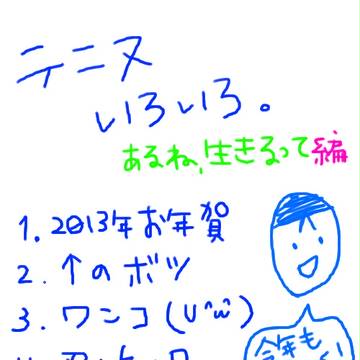 テニヌ
いろいろ。
あるね、生きるって編
1. 2013年お年賀
2. ↑のボツ
3. ワンコ(U^ω^)
今年も